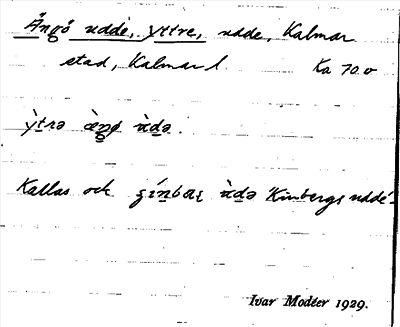 Ängö udde, yttre, udde, Kalmar
stad, Kalmar l. Ka 70 v
ỳtrə æ̀ŋø ùdə.
Kallas och ùdə Kinbergs udde
Ivar Modéer 1929.